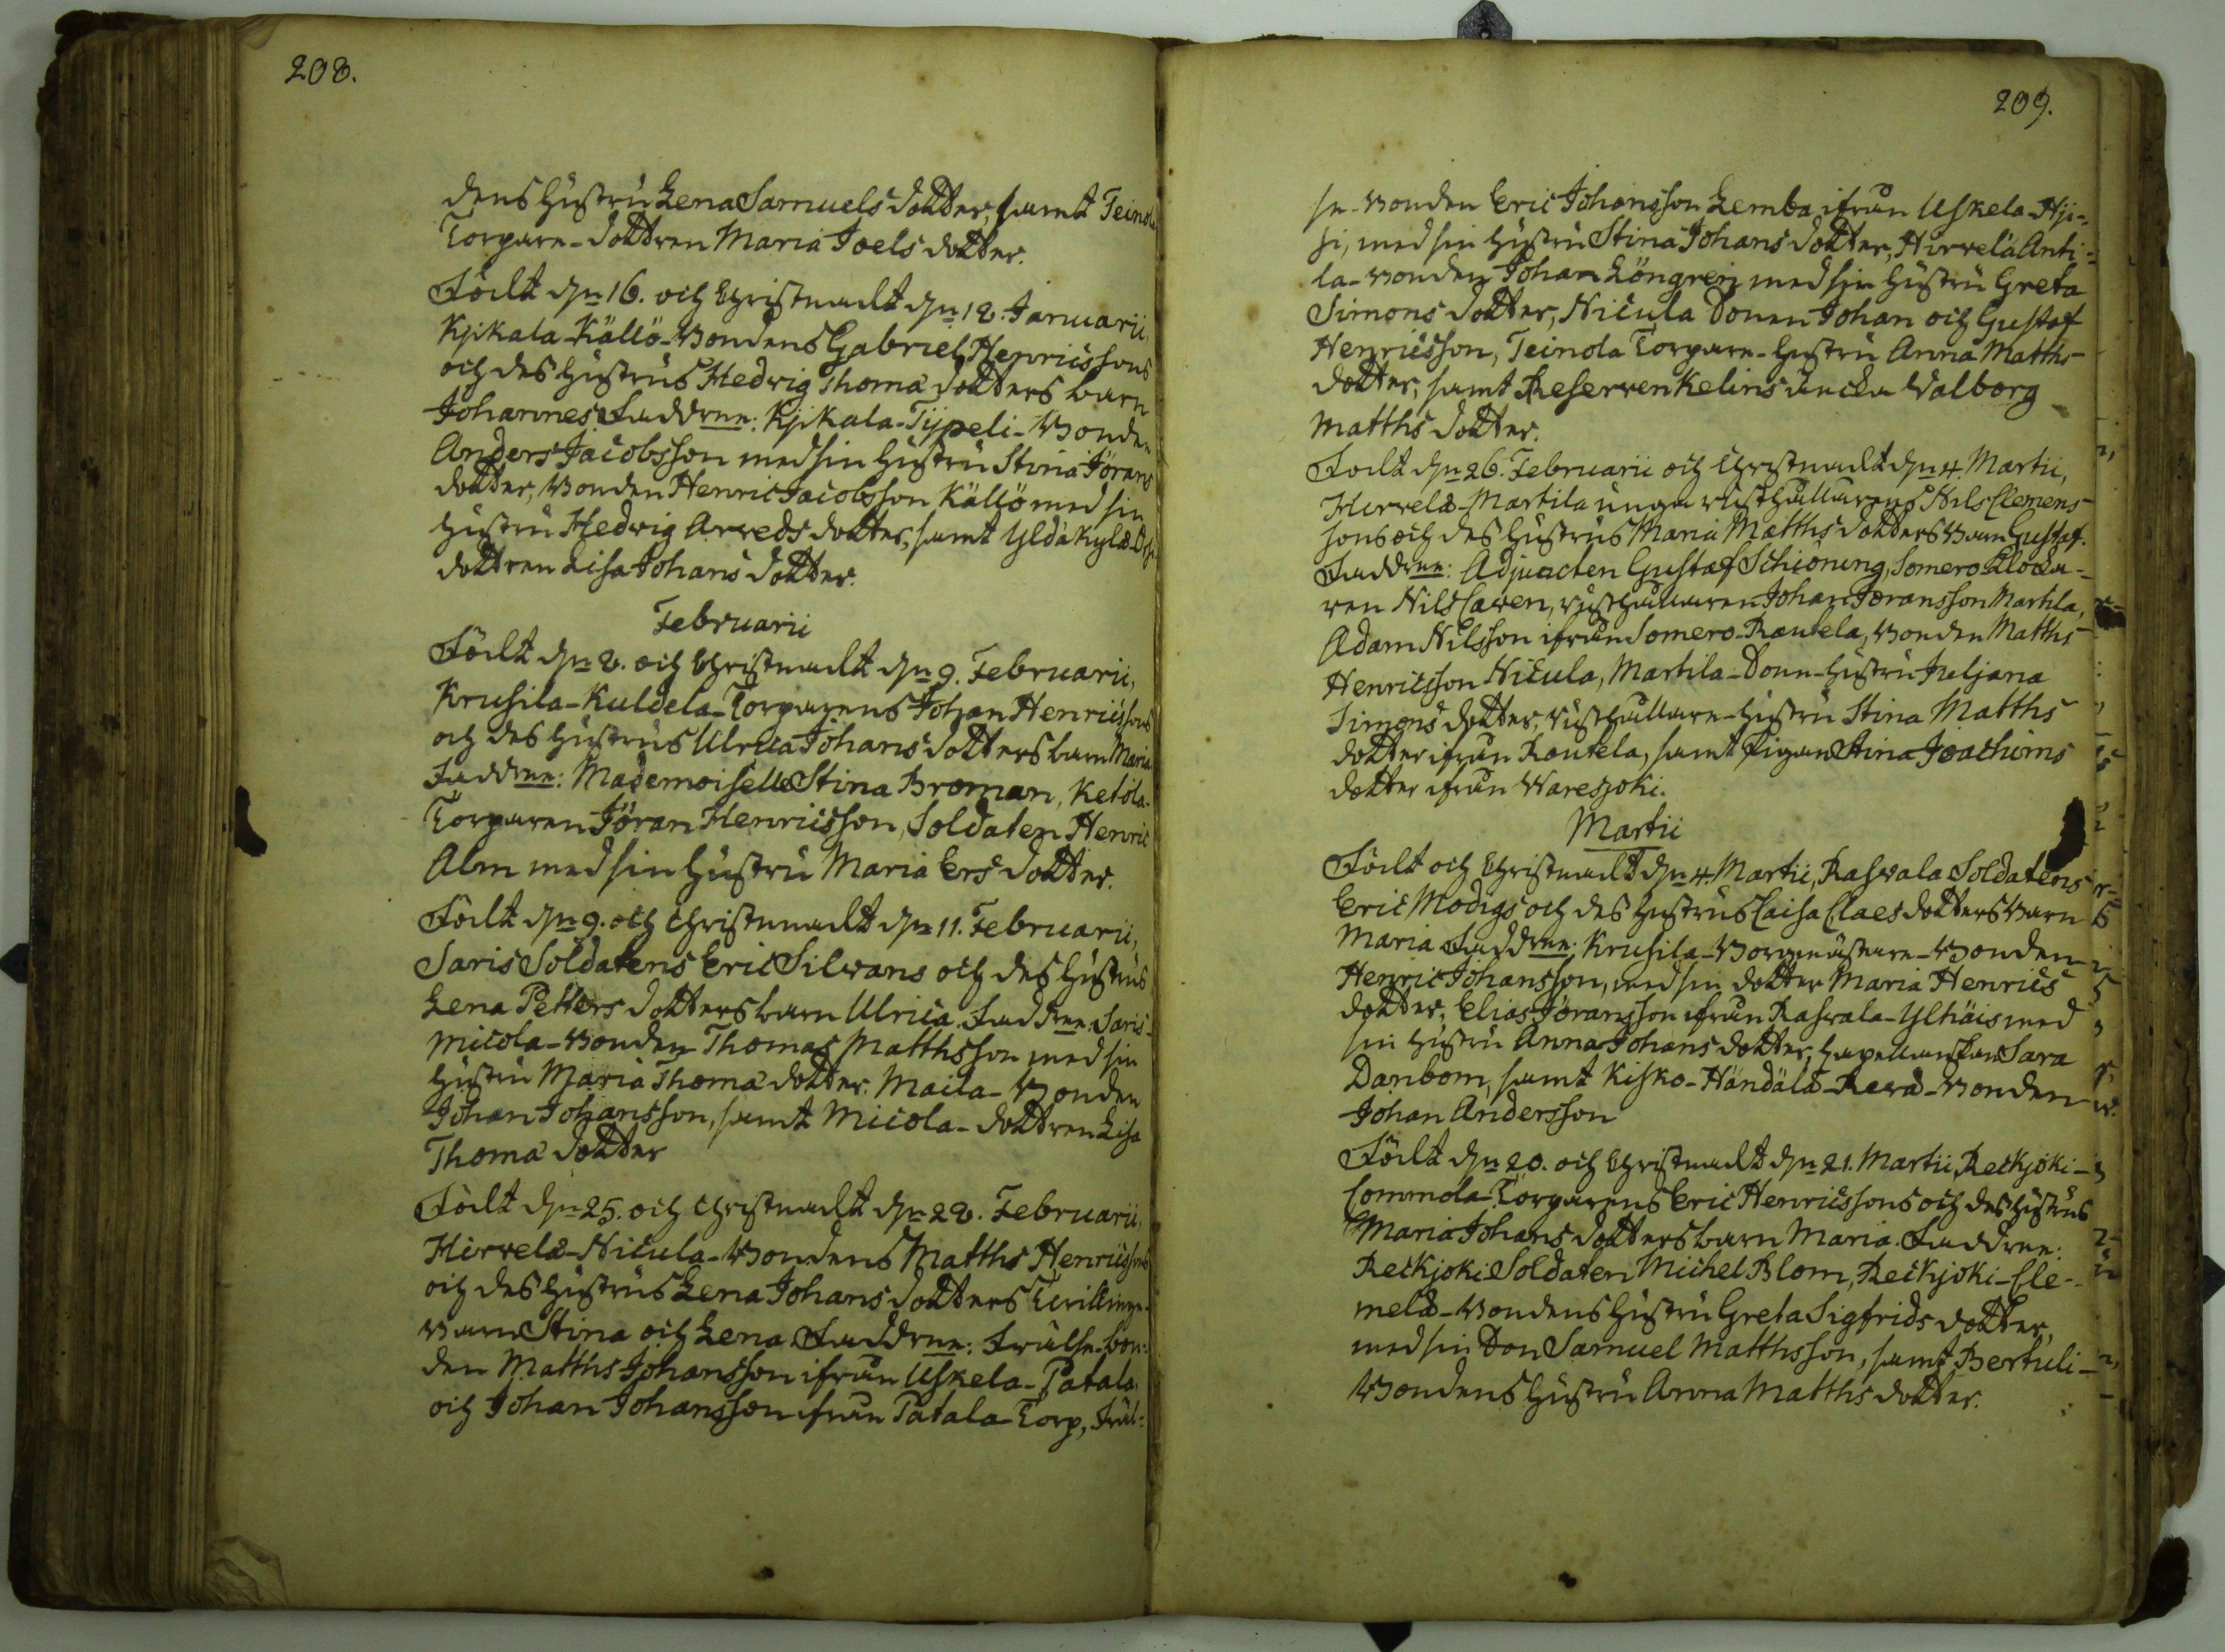 208.
dens hustru Lena Samuels dotter, samt Teinola
Torpare-dottren Maria Joels dotter.
Födt dn 16. och Christnadt dn 18. Januarii,
Kjikala-Källö-Bondens Gabriel Henricssons
och des hustrus Hedvig Thomæ dotters barn
Johannes. Faddrar: Kjikala-Tijpeli-Bonden
Anders Jacobsson med sin hustru Stina Jörans
dotter, Bonden Henric Jacobsson Källö med sin
hustru Hedvig Arveds dotter, samt Yldäkylä
dottren Lisa Johans dotter.
Februarii
Födt dn 8. och Christnadt dn 9. Februarii,
Krusila-Kuldela-Torparens Johan Henricssons
och des hustrus Ulrica Johans dotters barn Maria
Faddrar: Mademoiselle Stina Broman, Ketola-
Torparen Jöran Henricsson, Soldaten Henric
Alm med sin hustru Maria Ers dotter.
Födt dn 9. och Christnadt dn 11. Februarii,
Saris Soldatens Eric Silvans och des hustrus
Lena Petters dotters barn Ulrica. Faddrar: Saris-
Micola-Bonden Thomas Matthsson med sin
hustru Maria Thomæ dotter. Maila-Bonden
Johan Johansson, samt Micola-dottren Lisa
Thomæ dotter
Födt dn 25. och Christnadt dn 28. Februarii,
Hirvelä-Nicula-Bondens Matths Henricssons
och des hustrus Lena Johans dotters Tvillinge-
barn Stina och Lena. Faddrar: Frälse-bon-
den Matths Johansson ifrån Uskela-Patala,
och Johan Johansson ifrån Patala-Torp, Fräl-
209.
se-Bonden Eric Johansson Lemba ifrån Uskela-Hji-
si, med sin hustru Stina Johans dotter, Hirvelä Anti-
la-Bonden Johan Löngren med sin hustru Greta
Simons dotter, Nicula Sonen Johan och Gustaf
Henricsson, Teinola Torpare-hustru Anna Matths
dotter, samt Reserven Kelins äncka Walborg
Matths dotter.
Födt dn 26. Februarii och Christnadt dn 4. Martii,
Hirvelä-Martila unga rusthållarens Nils Clemens-
sons och des hustrus Maria Matths dotters barn Gustaf.
Faddrar: Adjuncten Gustaf Schiöning, Somero Klocka-
ren Nils Caven, rusthållaren Johan Joransson Martila,
Adam Nilsson ifrån Somero-Rautela, Bonden Matths
Henricsson Nicula, Martila-Sone-hustru Juljana
Simons dotter, rusthållare-hustru Stina Matths
dotter ifrån Rautela, samt Pigan Stina Joachims
dotter ifrån Waresjoki.
Martii
Födt och Christnadt dn 4. Martii, Rasvala Soldatens
Eric Modigs och des hustrus Caisa Claes dotters barn
Maria. Faddrar: Krusila-Borgmästare-Bonden
Henric Johansson, med sin dotter Maria Henrics
dotter, Elias Jöransson ifrån Rasvala-Yltäis med
sin hustru Anna Johans dotter, Capellanskan Sara
Danbom, samt Kisko-Händälä-Revä-Bonden
Johan Andersson
Födt dn 20. och Christnadt dn 21. Martii, Reckjoki-
Commola-Torparens Eric Henricssons och des hustrus
Maria Johans dotters barn Maria. Faddrar:
Reckjoki Soldaten Michel Blom, Reckjoki-Cle-
melä-Bondens hustru Greta Sigfrids dotter,
med sin Son Samuel Matthsson, samt Bertuli-
Bondens hustru Anna Matths dotter.